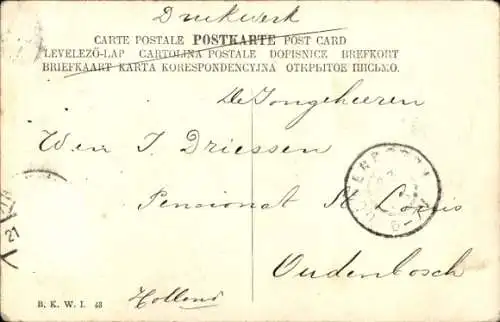 Drukwerk
CARTE POSTALE POSTKARTE POST CARD
LEVELEZŐ-LAP CARTOLINA POSTALE DOPISNICE BREFKORT
BRIEFKAART KARTA KORESPONDENCYJNA ОТКРЫТОЕ ПИСЬМО.
De Jongeheeren
W en J. Driessen
Pensionat St Louis
Oudenbosch
B. K. W. I. 43
Holland